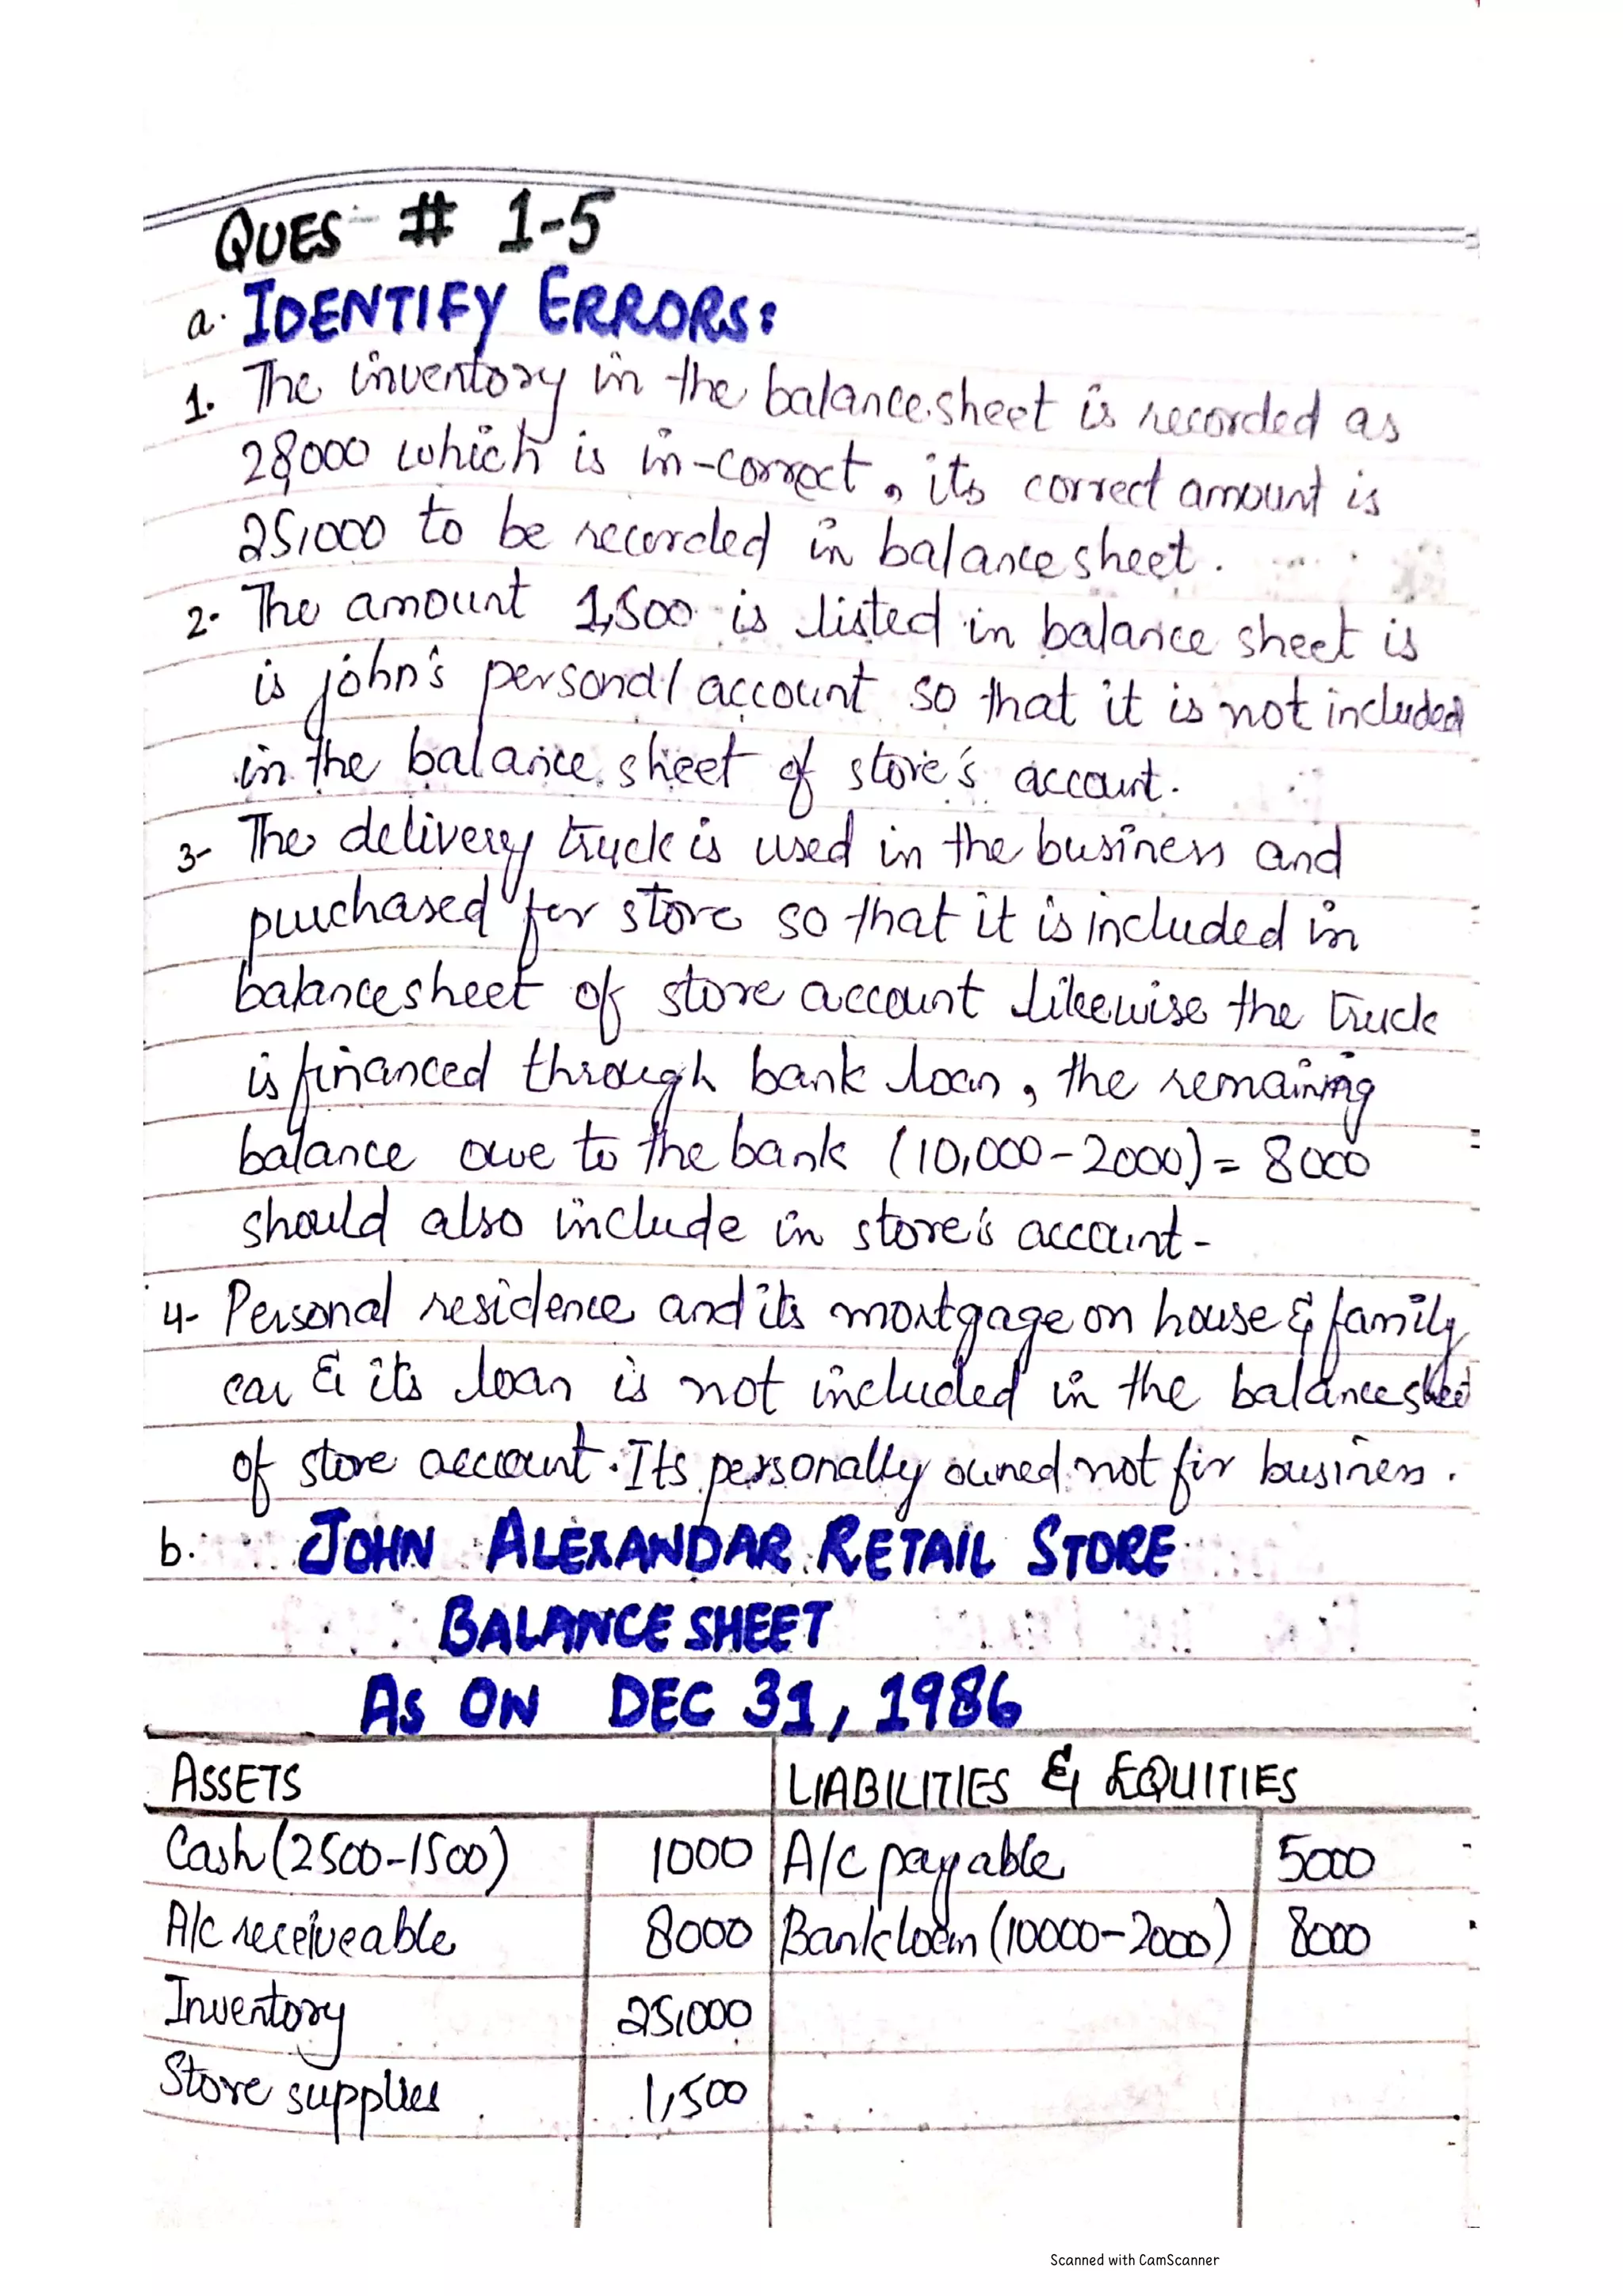 QUES # 1-5
a. IDENTIFY ERRORS:
1. The inventory in the balance sheet is recorded as
28,000 which is in-correct, its correct amount is
25,000 to be recorded in balance sheet.
2- The amount 1,500 is listed in balance sheet is
is john's personal account so that it is not included
in the balance sheet of store's account.
3- The delivery truck is used in the business and
purchased for store so that it is included in
balance sheet of store account likewise the truck
is financed through bank loan, the remaining
balance owe to the bank (10,000-2000) = 8000
should also include in store's account-
4- Personal residence and its mortgage on house & family
car & its loan is not included in the balance sheet
of store account. Its personally owned not for business.
b. JOHN ALEXANDAR RETAIL STORE
BALANCE SHEET
AS ON DEC 31, 1986
ASSETS LIABILITIES & EQUITIES
Cash (2500-1500) 1000 A/c payable 5000
A/c receiveable 8000 Bank loan (10000-2000) 8000
Inventory 25,000
Store supplies 1,500
Scanned with CamScanner